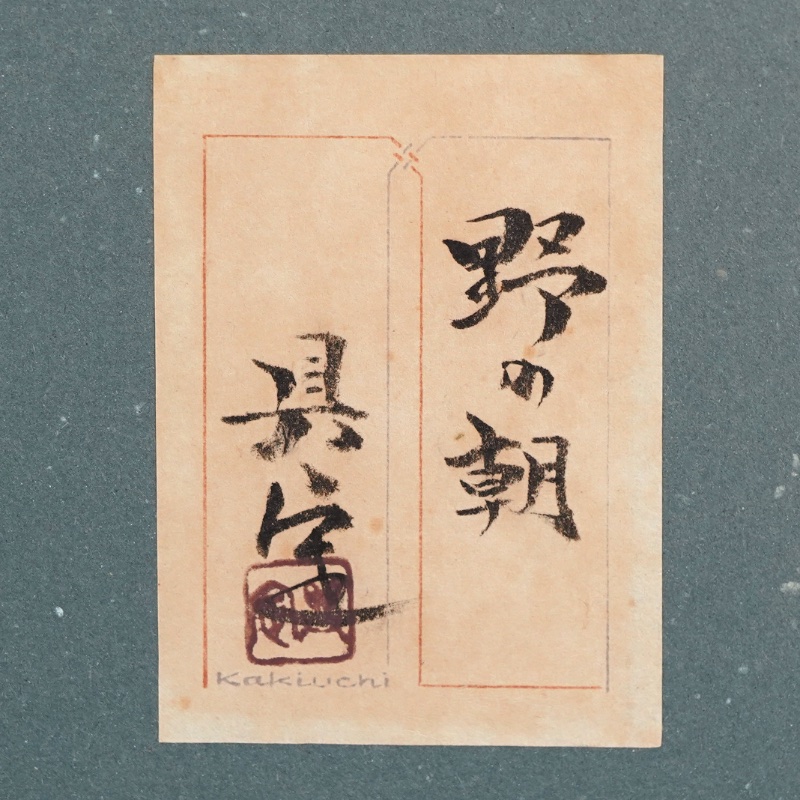 野の朝
具定
Kakiuchi